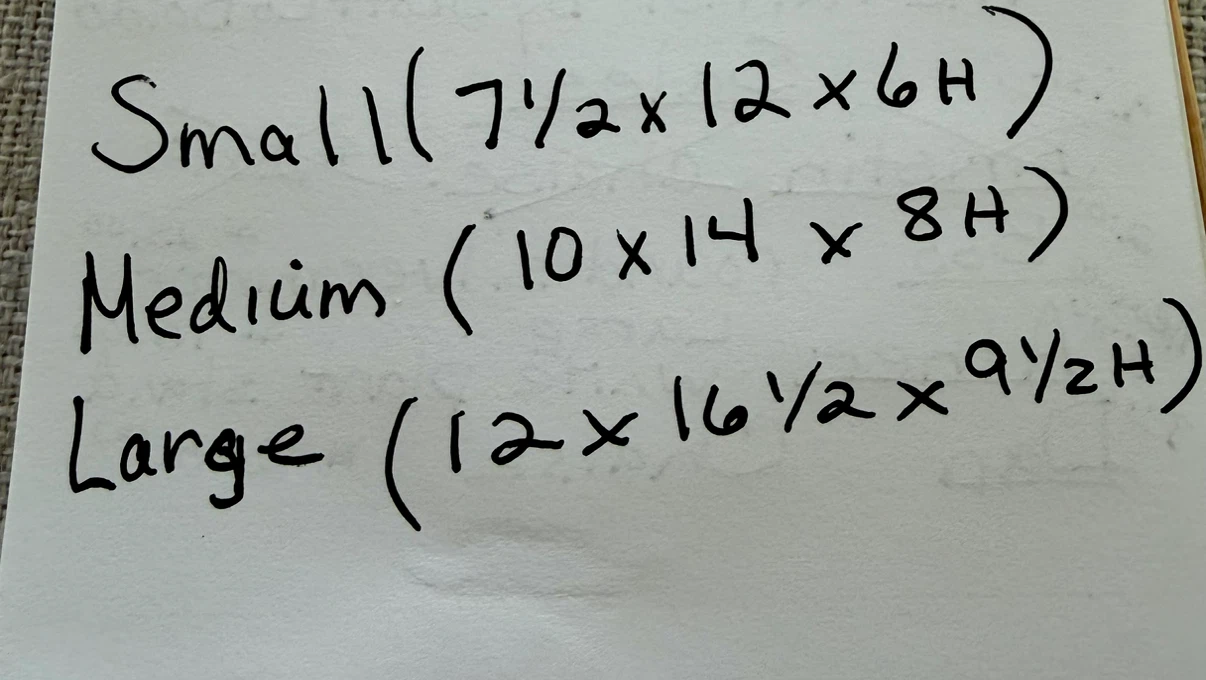 Small (7 1/2 x 12 x 6 H)
Medium (10 x 14 x 8 H)
Large (12 x 16 1/2 x 9 1/2 H)